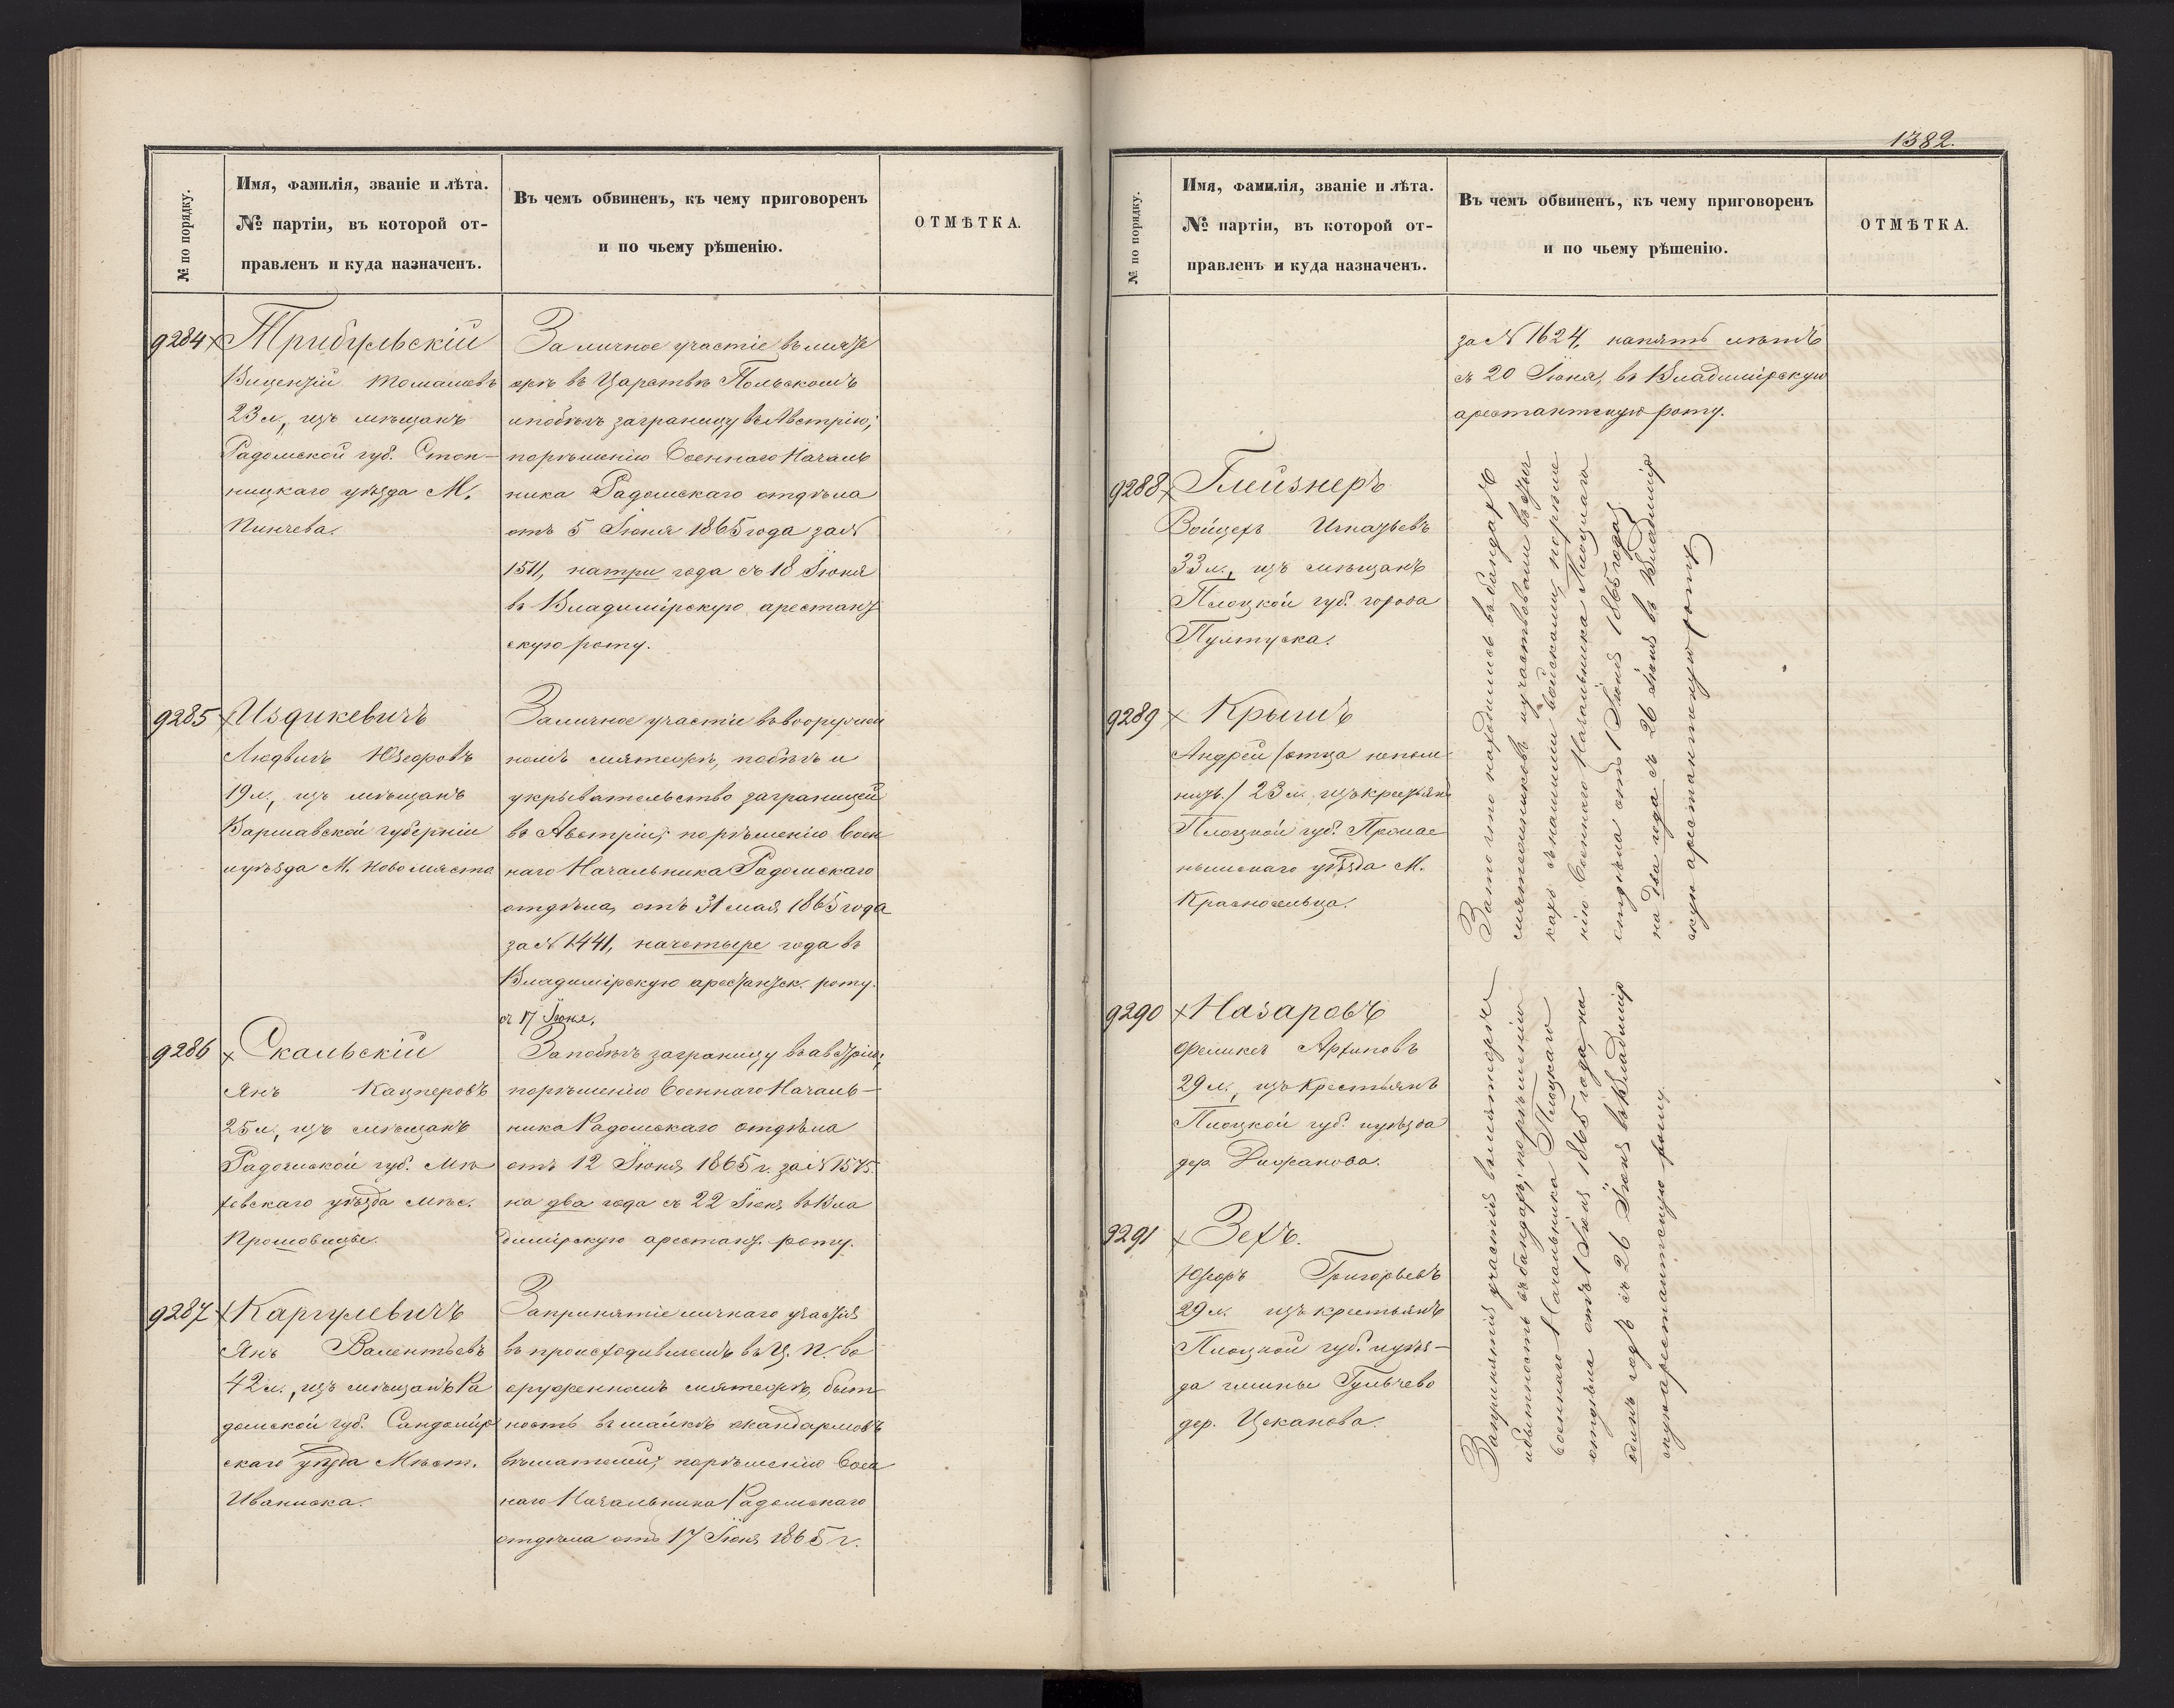 № по порядку.
Имя, фамилія, званіе и лѣта.
№ партіи, въ которой от-
правленъ и куда назначенъ.
Въ чемъ обвиненъ, къ чему приговоренъ
и по чьему рѣшенію.
ОТМѢТКА.
9284 × Трибульскій
Виценцій Томашевъ
23 л, изъ мѣщанъ
Радомской губ. Стоп-
ницкаго уѣзда М.
Пинчева.
За личное участіе въ мяте
жѣ въ Царствѣ Польскомъ
и побѣгъ заграницу въ Австрію;
по рѣшенію Военнаго Началь
ника Радомскаго отдѣла
отъ 5 Іюня 1865 года за №
1511, на три года съ 18 Іюня
въ Владимірскую арестант
скую роту.
9285 × Издикевичъ
Людвигъ Юзефовъ
19 л, изъ мѣщанъ
Варшавской губерніи
и уѣзда М. Новомяста
За личное участіе въ вооружен
номъ мятежѣ, побѣгъ и
укрывательство заграницей
въ Австріи; по рѣшенію Воен
наго Начальника Радомскаго
отдѣла, отъ 31 мая 1865 года
за № 1441, на четыре года въ
Владимірскую арестантск. роту.
съ 17 Іюня.
9286 × Скальскій
Янъ Кацперовъ
25 л, изъ мѣщанъ
Радомской губ. Мѣ
ховскаго уѣзда мѣс.
Прошовицы.
За побѣгъ заграницу въ австрію;
по рѣшенію Военнаго Началь-
ника Радомскаго отдѣла
отъ 12 Іюня 1865 г. за № 1575
на два года съ 22 Іюня въ Вла
димірскую арестант. роту.
9287 × Каргулевичъ
Янъ Валентьевъ
42 л., изъ мѣщанъ Ра
домской губ. Сандомір
скаго уѣзда Мѣст.
Иваниска.
За принятіе личнаго участія
въ происходившемъ въ Ц. П. во
оруженномъ мятежѣ, быт
ность въ шайкѣ жандармовъ
вѣшателей; по рѣшенію Воен
наго Начальника Радомскаго
отдѣла отъ 17 Іюня 1865 г.
1382.
№ по порядку.
Имя, фамилія, званіе и лѣта.
№ партіи, въ которой от-
правленъ и куда назначенъ.
Въ чемъ обвиненъ, къ чему приговоренъ
и по чьему рѣшенію.
ОТМѢТКА.
за № 1624, на пять лѣтъ
съ 20 Іюня, въ Владимірскую
арестантскую роту.
9288 × Глейзнеръ
Войцехъ Игнатьевъ
33 л., изъ мѣщанъ
Плоцкой губ. города
Пултуска.
9289 × Крыпъ
Андрей (отца непом-
нитъ.) 23 л. изъ крестьянъ
Плоцкой губ. Праснс
нышскаго уѣзда М.
Красносельца.
За то что находились въ бандахъ
мятежниковъ и участвовали въ стыч
кахъ съ нашими войсками, по рѣше
нію Военнаго Начальника Плоцкаго
отдѣла отъ 1 Іюня 1865 года
на два года съ 26 Іюня въ Владимір
скую арестантскую роту
9290 × Назаровъ
Феликсъ Архиповъ
29 л., изъ крестьянъ
Плоцкой губ. и уѣзда
дер.
9291 × Зехъ.
Юзефъ Григорьевъ
29 л. изъ крестьянъ
Плоцкой губ. и уѣз-
да гмины Гульчево
дер. Цеканова.
За принятія участія въ мятежѣ
и бытность въ бандахъ; по рѣшенію
Военнаго Начальника Плоцкаго
отдѣла отъ 1 Іюня 1865 года, на
одинъ годъ съ 26 Іюня въ Владимір
скую арестантскую роту.